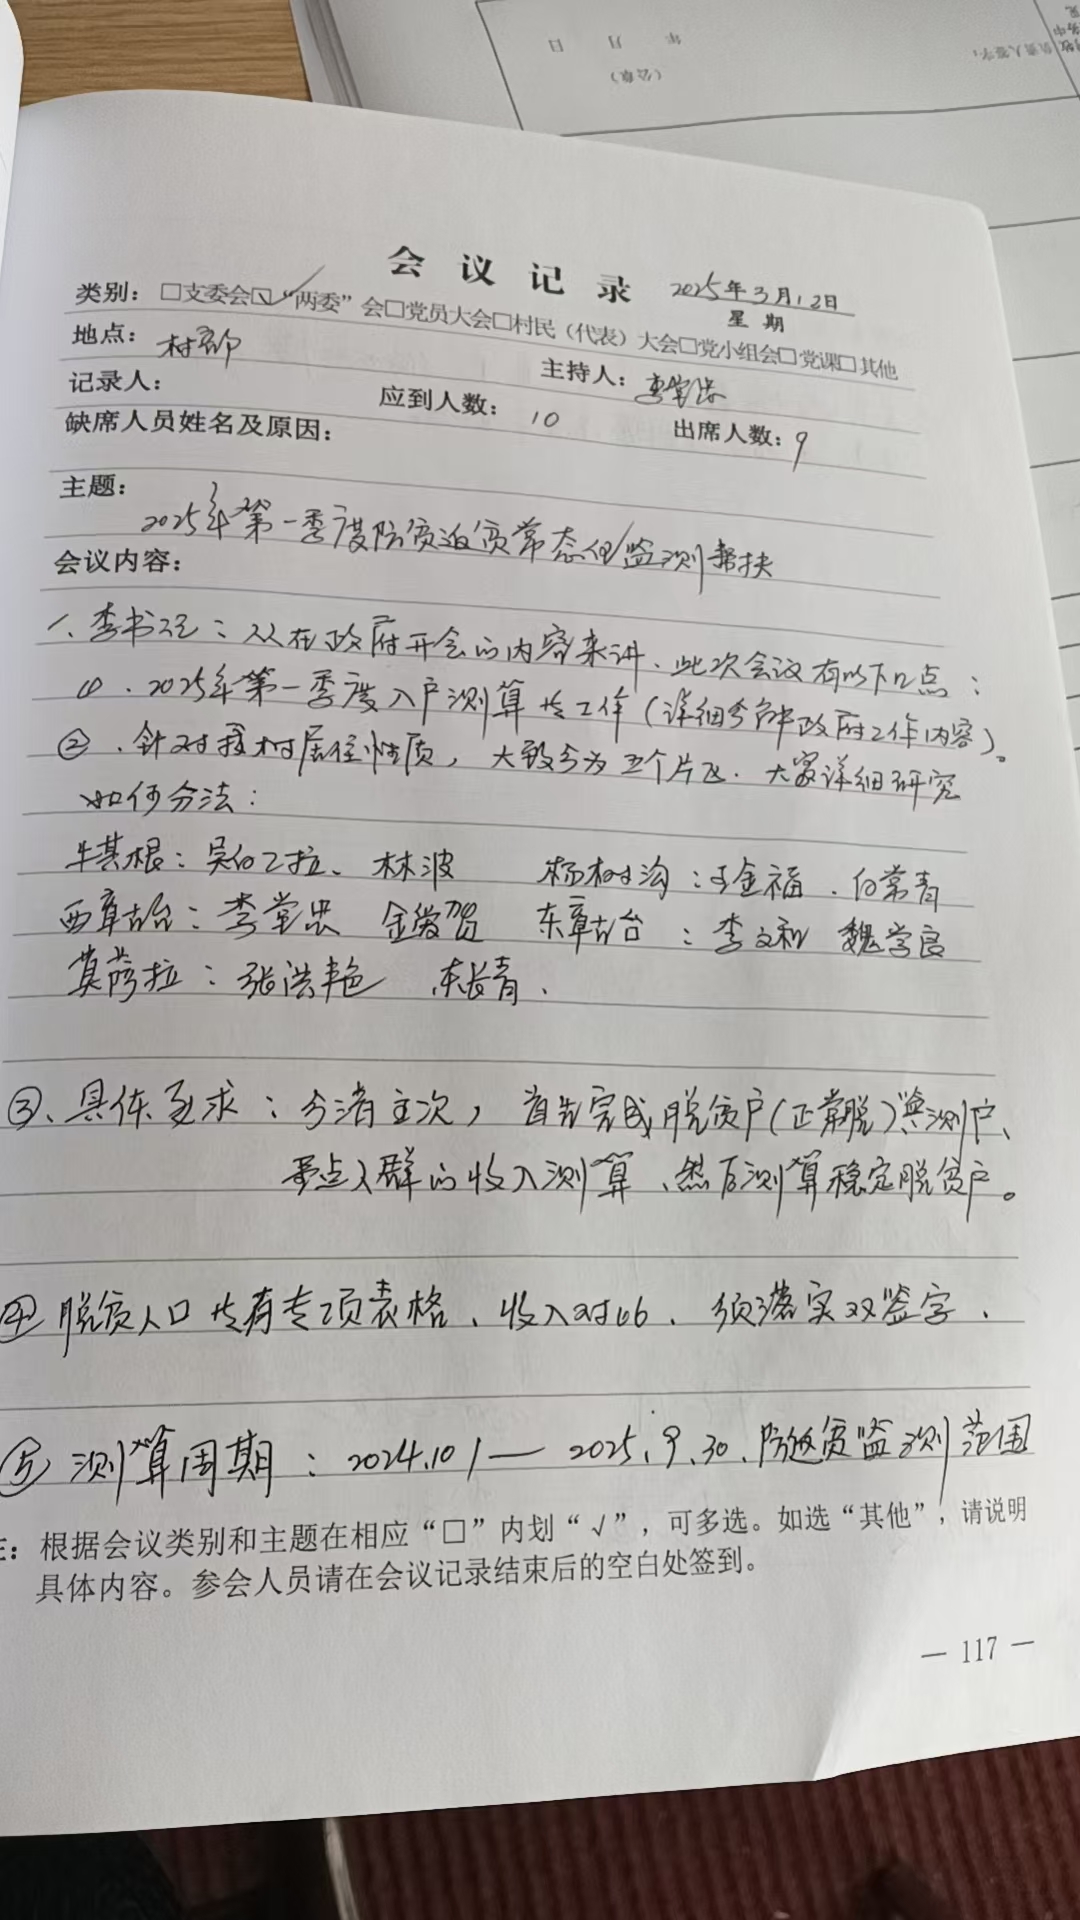 年 月 日
（公章）
负责人签字：
会议记录
2025年3月12日
星期
类别：□支委会☑“两委”会□党员大会□村民（代表）大会□党小组会□党课□其他
地点：村部
主持人：李堂忠
记录人：
应到人数：10
出席人数：9
缺席人员姓名及原因：
主题：
2025年第一季度防贫返贫常态化监测帮扶
会议内容：
1、李书记：从在政府开会的内容来讲、此次会议有以下几点：
①、2025年第一季度入户测算 工作（详细 政府工作内容）。
②、针对我村居住性质，大致分为五个片区、大家详细研究
如何分法：
牛其根：吴白乙拉、林波 杨树沟：于金福、白常青
西章古台：李堂忠 金贺 东章古台：李文和 魏学良
莫莎拉：张洪艳 东长青、
③、具体要求：分清主次，首先完成脱贫户（正常脱）监测户、
重点人群的收入测算、然后测算稳定脱贫户。
④脱贫人口共有专项表格、收入对比、须落实双签字、
⑤测算周期：2024.10.1—2025.9.30、防返贫监测范围
注：根据会议类别和主题在相应“□”内划“√”，可多选。如选“其他”，请说明
具体内容。参会人员请在会议记录结束后的空白处签到。
— 117 —